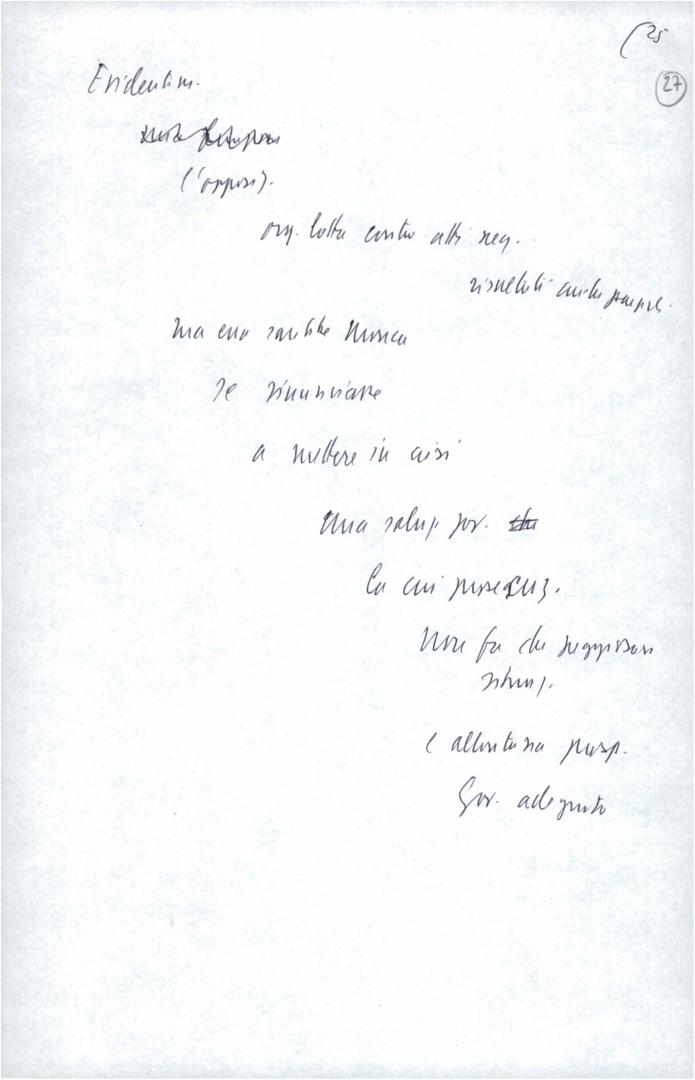 (25
27
Evidentem.
(l'opposi).
org. lotta contro atti neg.
risultati anche
ma essa sarebbe monca
se rinunciasse
a mettere in crisi
una soluz. gov.
la cui presenz.
non fa che
situaz.
e allontana prosp.
gov. adeguato